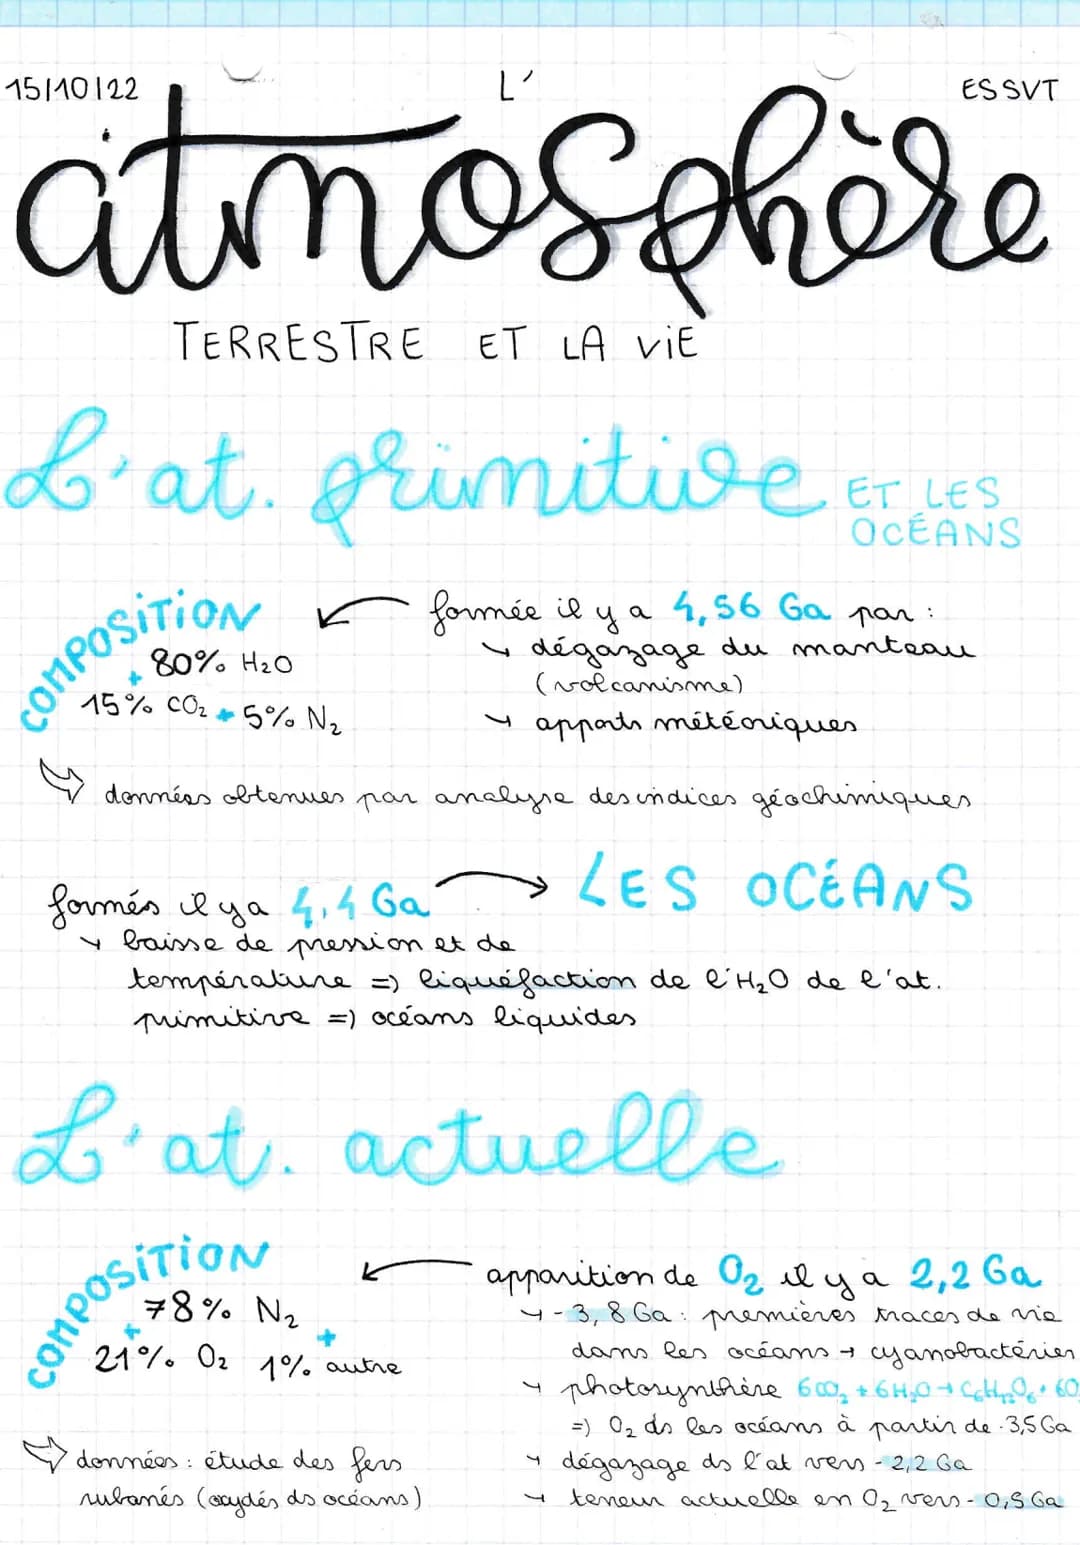 15/10/22
L'
ES SVT
atmosphère
TERRESTRE ET LA ViE
L'at. primitive ET LES
OCÉANS
COMPOSITION
80% H₂O
+
15% CO₂ + 5% N₂
formée il y a 4,56 Ga par :
dégazage du manteau
(volcanisme)
apports météoriques
données obtenues par analyse des indices géochimiques
formés il y a 4,4 Ga → LES OCÉANS
baisse de pression et de
température => liquéfaction de l'H₂O de l'at.
primitive => océans liquides
L'at. actuelle
COMPOSITION
78% N₂
+ +
21% O₂ 1% autre
apparition de O₂ il y a 2,2 Ga
-3,8 Ga : premières traces de vie
dans les océans → cyanobactéries
photosynthèse 6CO₂ + 6H₂O → C₆H₁₂O₆ + 6O
=> O₂ ds les océans à partir de -3,5 Ga
dégazage ds l'at vers -2,2 Ga
teneur actuelle en O₂ vers -0,5 Ga
données : étude des fers
rubanés (oxydés ds océans)